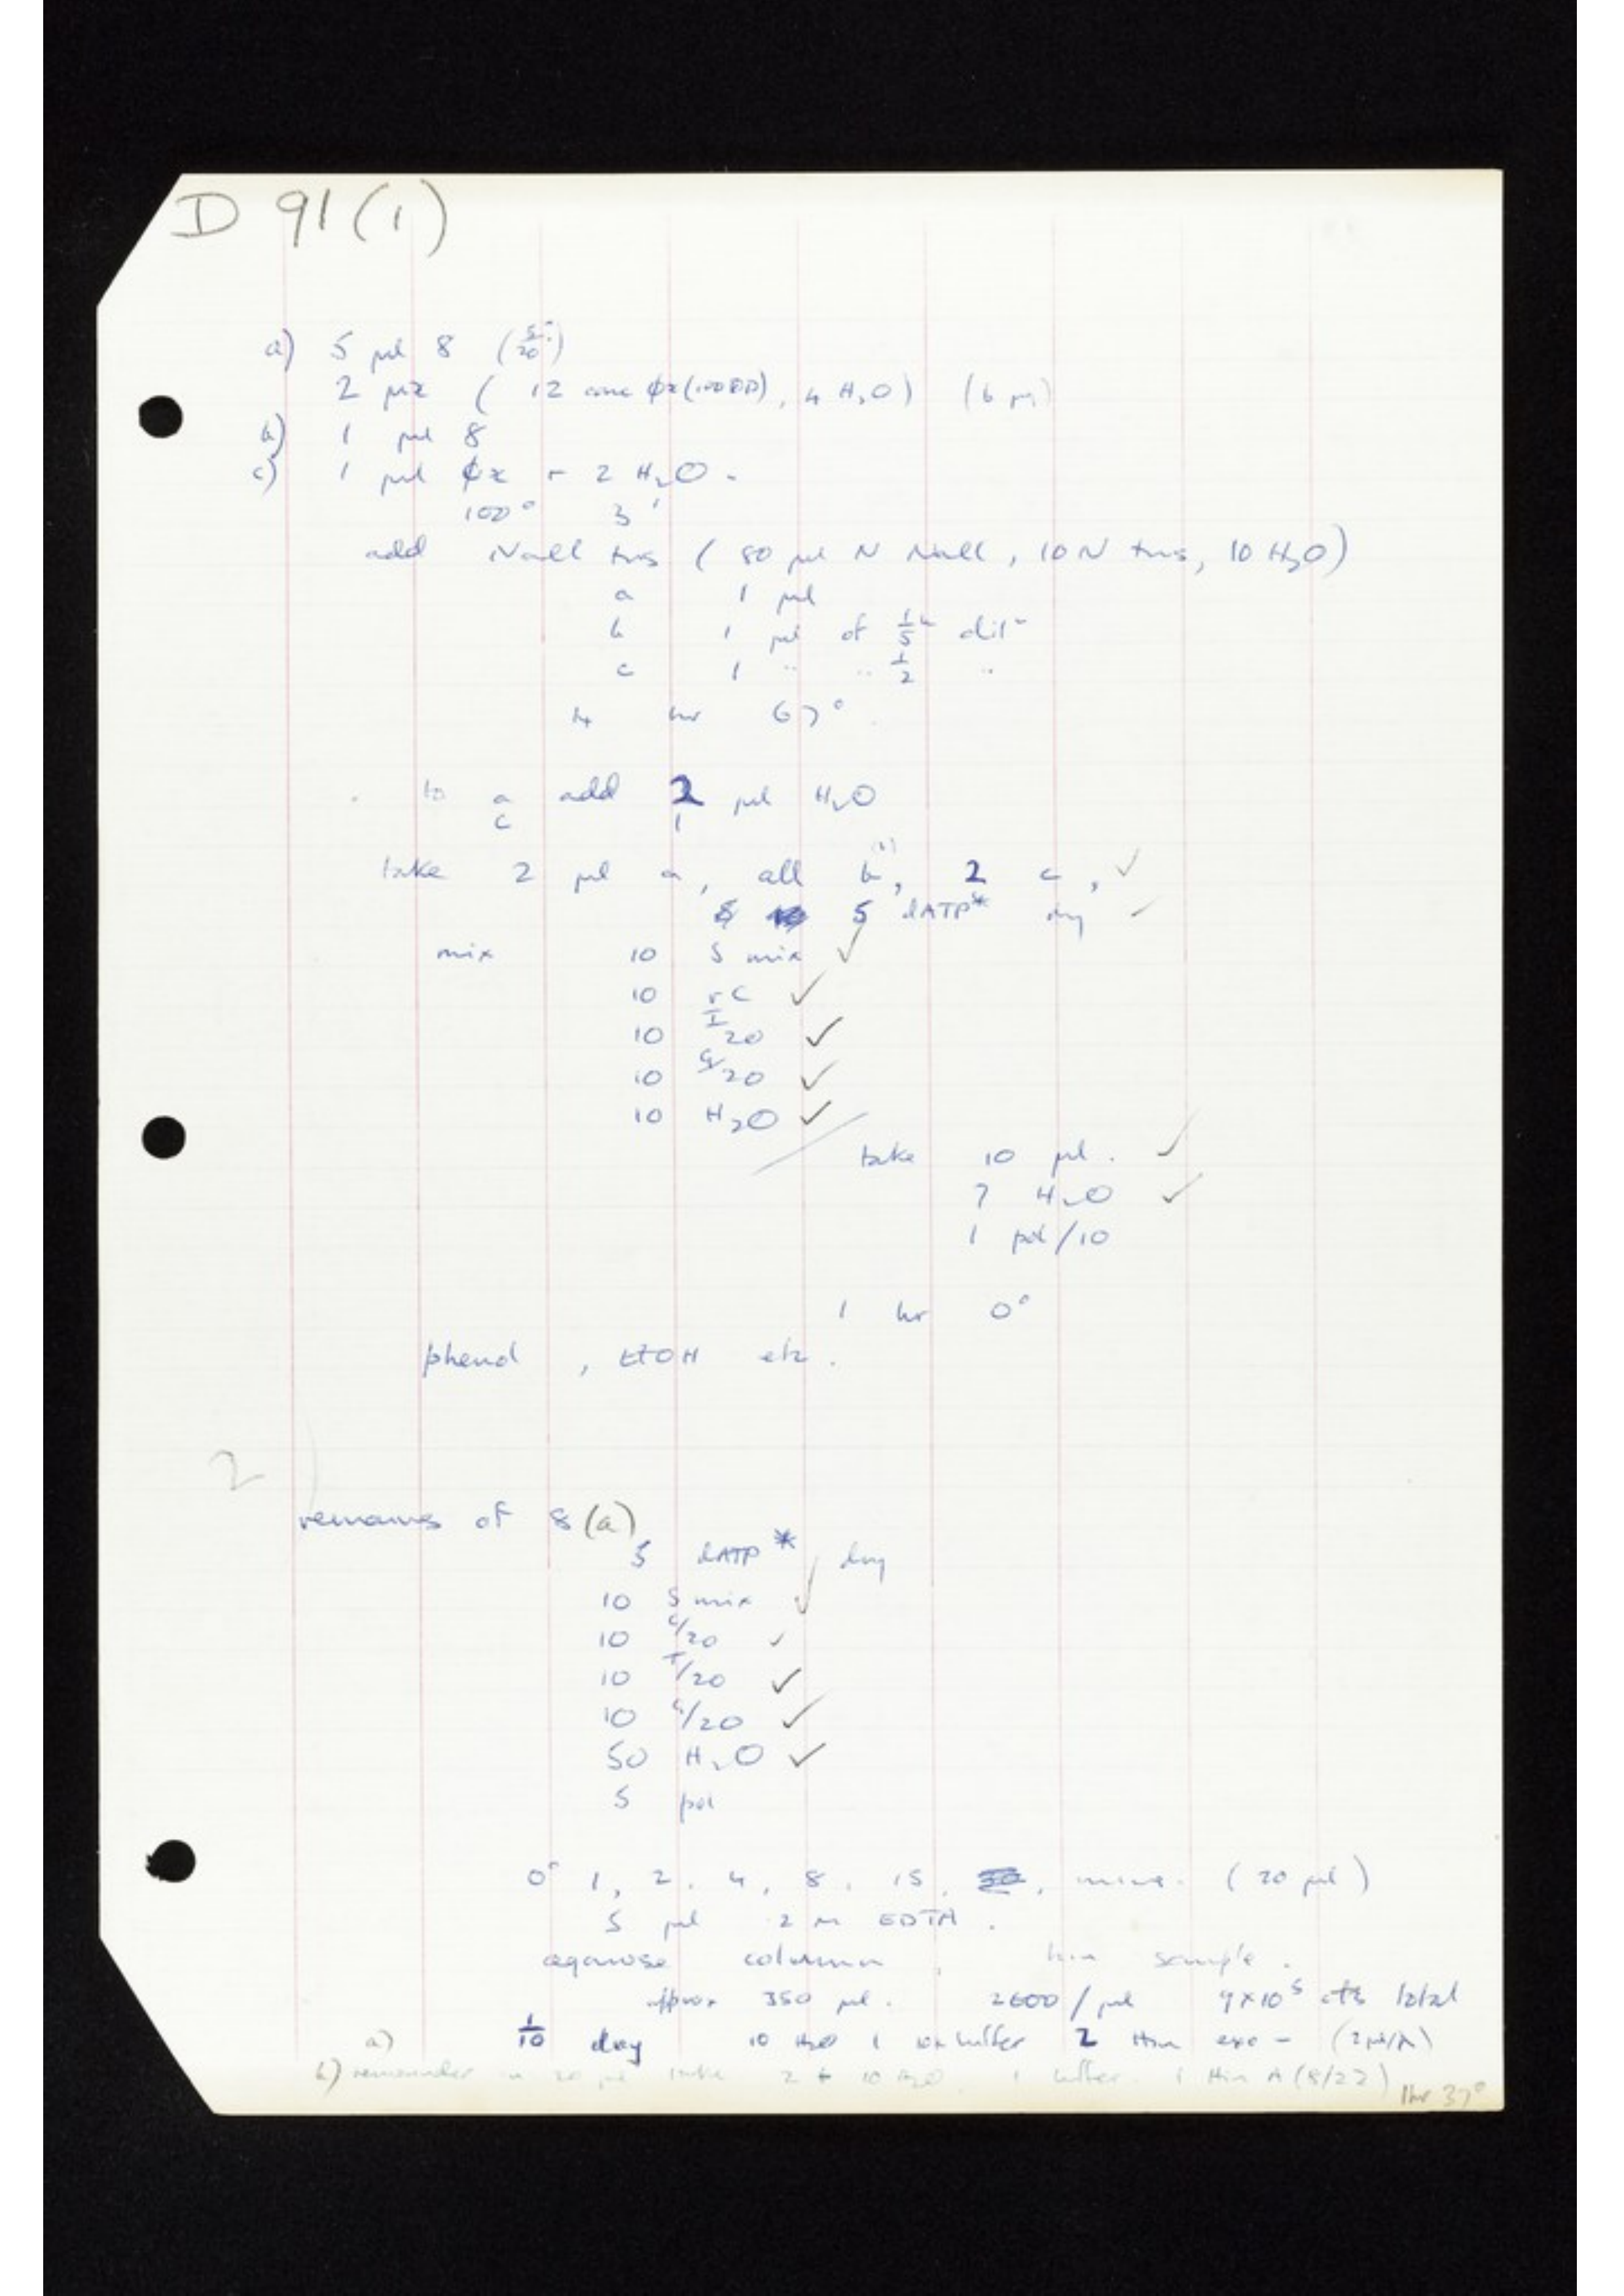 D 91 (1)
a) 5 µl 8
2 µl ( 12 conc φx (100 OD), 4 H2O )
b) 1 µl 8
c) 1 µl φx + 2 H2O
100° 3'
add NaCl tris ( 80 µl N NaCl, 10 N tris, 10 H2O )
a 1 µl
b 1 µl of 1/5 dil
c 1 " " 1/2 "
4 hr 67°
to a add 2 µl H2O
c 1
take 2 µl a, all b, 2 c, ✓
5 dATP* dry ✓
mix 10 S mix ✓
10 rC ✓
10 T/20 ✓
10 G/20 ✓
10 H2O ✓
take 10 µl. ✓
7 H2O ✓
1 pol/10
1 hr 0°
phenol, EtOH etc.
2)
remains of 8 (a)
5 dATP* dry
10 S mix ✓
10 C/20 ✓
10 T/20 ✓
10 G/20 ✓
50 H2O ✓
5 pol
0° 1, 2, 4, 8, 15, mins. ( 20 µl )
5 µl .2 M EDTA.
agarose column, Hin sample.
approx 350 µl. 2600/µl 9×10⁵ cts total
a) 1/10 dry 10 H2O 1 10x buffer 2 Hin exo - (2µl/λ)
b) remainder in 20 µl take 2 + 10 H2O 1 buffer. 1 Hin A (8/22) 1hr 37°